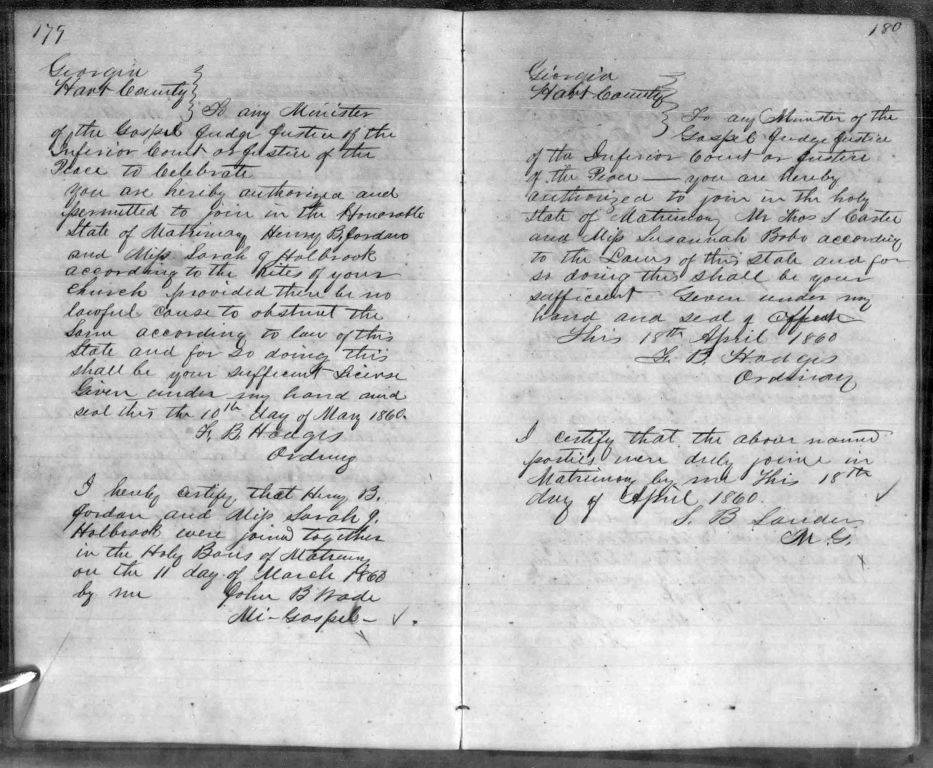 179
Georgia
Hart County
To any Minister
of the Gospel Judge Justice of the
Inferior Court or Justice of the
Peace to Celebrate
you are hereby authorized and
permitted to join in the Honorable
State of Matrimony Henry B. Jordan
and Miss Sarah J Holbrook
according to the Rites of your
Church provided there be no
lawful cause to obstruct the
Same according to law of this
State and for So doing this
shall be your sufficient License
Given under my hand and
seal this the 10th day of May 1860.
F. B Hodges
Ordinry
I hereby certify that Henry B.
Jordan and Miss Sarah J.
Holbrook were joined together
in the Holy Bans of Matrimony
on the 11 day of March 1860
by me John B Wade
Mi - Gospel -
180
Georgia
Hart County
To any Minister of the
Gospel Judge Justice
of the Inferior Court or Justice
of the Peace — you are hereby
authorized to join in the holy
state of Matrimony Mr Thos S Carter
and Miss Susannah Bobo according
to the Laws of this state and for
so doing this shall be your
sufficient Given under my
hand and seal of Office
This 18th April 1860
F. B. Hodges
Ordinary
I certify that the above named
parties were duly joine in
Matrimony by me This 18th
day of April 1860.
S. B Sanders
M. G.